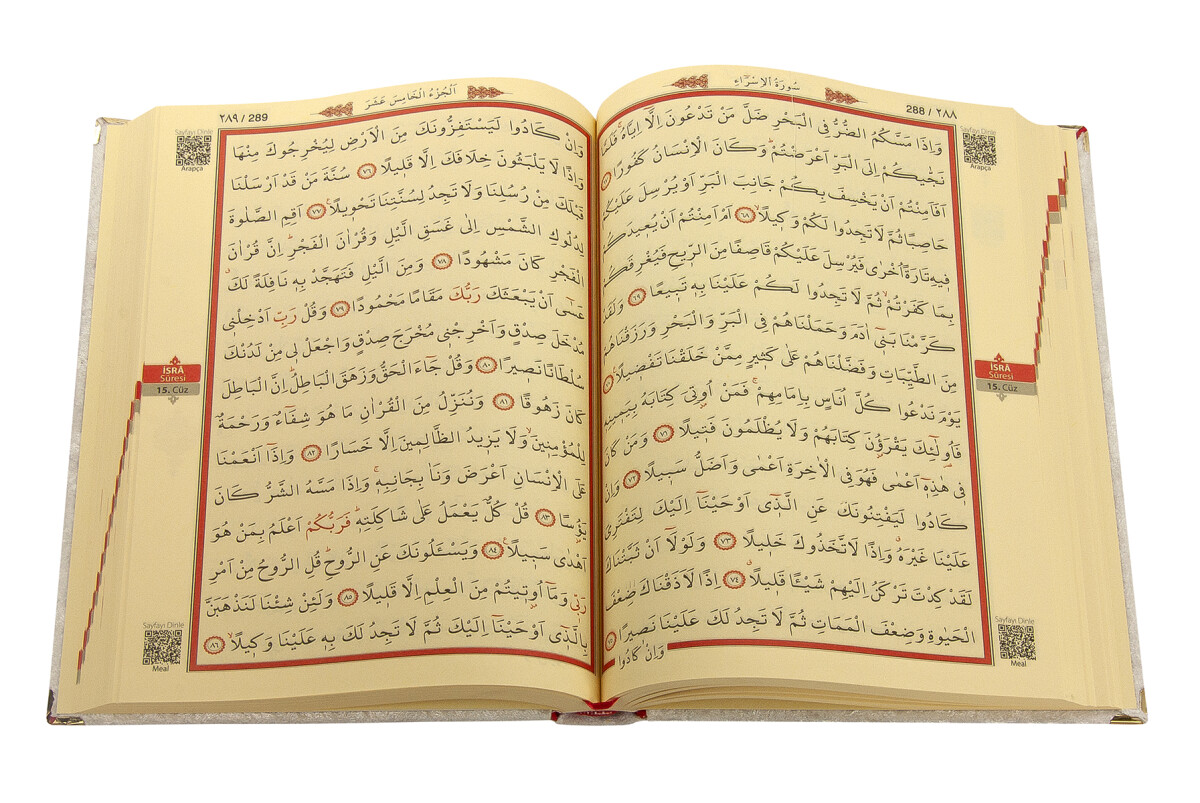 سُورَةُ الْاِسْرَٓاءِ
288 / ٢٨٨
Sayfayı Dinle
Arapça
وَاِذَا مَسَّكُمُ الضُّرُّ فِى الْبَحْرِ ضَلَّ مَنْ تَدْعُونَ اِلَّٓا اِيَّاهُۚ فَلَمَّا
نَجّٰيكُمْ اِلَى الْبَرِّ اَعْرَضْتُمْۜ وَكَانَ الْاِنْسَانُ كَفُورًا
اَفَاَمِنْتُمْ اَنْ يَخْسِفَ بِكُمْ جَانِبَ الْبَرِّ اَوْ يُرْسِلَ عَلَيْكُمْ
حَاصِبًا ثُمَّ لَا تَجِدُوا لَكُمْ وَكٖيلًاۙ ﴿٦٨﴾ اَمْ اَمِنْتُمْ اَنْ يُعٖيدَكُمْ
فٖيهِ تَارَةً اُخْرٰى فَيُرْسِلَ عَلَيْكُمْ قَاصِفًا مِنَ الرّٖيحِ فَيُغْرِقَكُمْ
بِمَا كَفَرْتُمْۙ ثُمَّ لَا تَجِدُوا لَكُمْ عَلَيْنَا بِهٖ تَبٖيعًا ﴿٦٩﴾ وَلَقَدْ
كَرَّمْنَا بَنٖٓى اٰدَمَ وَحَمَلْنَاهُمْ فِى الْبَرِّ وَالْبَحْرِ وَرَزَقْنَاهُمْ
مِنَ الطَّيِّبَاتِ وَفَضَّلْنَاهُمْ عَلٰى كَثٖيرٍ مِمَّنْ خَلَقْنَا تَفْضٖيلًا
يَوْمَ نَدْعُوا كُلَّ اُنَاسٍ بِاِمَامِهِمْۚ فَمَنْ اُو۫تِىَ كِتَابَهُ بِيَمٖينِهٖ
فَاُو۬لٰٓئِكَ يَقْرَؤُ۫نَ كِتَابَهُمْ وَلَا يُظْلَمُونَ فَتٖيلًا ﴿٧١﴾ وَمَنْ كَانَ
فٖى هٰذِهٖٓ اَعْمٰى فَهُوَ فِى الْاٰخِرَةِ اَعْمٰى وَاَضَلُّ سَبٖيلًا ﴿٧٢﴾ وَاِنْ
كَادُوا لَيَفْتِنُونَكَ عَنِ الَّذٖٓى اَوْحَيْنَٓا اِلَيْكَ لِتَفْتَرِىَ
عَلَيْنَا غَيْرَهُۗ وَاِذًا لَاتَّخَذُوكَ خَلٖيلًا ﴿٧٣﴾ وَلَوْلَٓا اَنْ ثَبَّتْنَاكَ
لَقَدْ كِدْتَ تَرْكَنُ اِلَيْهِمْ شَيْـًٔا قَلٖيلًاۗ ﴿٧٤﴾ اِذًا لَاَذَقْنَاكَ ضِعْفَ
الْحَيٰوةِ وَضِعْفَ الْمَمَاتِ ثُمَّ لَا تَجِدُ لَكَ عَلَيْنَا نَصٖيرًا
وَاِنْ كَادُوا
İSRÂ
Sûresi
15. Cüz
Sayfayı Dinle
Meal
اَلْجُزْءُ الْخَامِسَ عَشَرَ
٢٨٩ / 289
Sayfayı Dinle
Arapça
وَاِنْ كَادُوا لَيَسْتَفِزُّونَكَ مِنَ الْاَرْضِ لِيُخْرِجُوكَ مِنْهَا
وَاِذًا لَا يَلْبَثُونَ خِلَافَكَ اِلَّا قَلٖيلًا ﴿٧٦﴾ سُنَّةَ مَنْ قَدْ اَرْسَلْنَا
قَبْلَكَ مِنْ رُسُلِنَا وَلَا تَجِدُ لِسُنَّتِنَا تَحْوٖيلًا۟ ﴿٧٧﴾ اَقِمِ الصَّلٰوةَ
لِدُلُوكِ الشَّمْسِ اِلٰى غَسَقِ الَّيْلِ وَقُرْاٰنَ الْفَجْرِۜ اِنَّ قُرْاٰنَ
الْفَجْرِ كَانَ مَشْهُودًا ﴿٧٨﴾ وَمِنَ الَّيْلِ فَتَهَجَّدْ بِهٖ نَافِلَةً لَكَۗ
عَسٰٓى اَنْ يَبْعَثَكَ رَبُّكَ مَقَامًا مَحْمُودًا ﴿٧٩﴾ وَقُلْ رَبِّ اَدْخِلْنٖى
مُدْخَلَ صِدْقٍ وَاَخْرِجْنٖى مُخْرَجَ صِدْقٍ وَاجْعَلْ لٖى مِنْ لَدُنْكَ
سُلْطَانًا نَصٖيرًا ﴿٨٠﴾ وَقُلْ جَٓاءَ الْحَقُّ وَزَهَقَ الْبَاطِلُۜ اِنَّ الْبَاطِلَ
كَانَ زَهُوقًا ﴿٨١﴾ وَنُنَزِّلُ مِنَ الْقُرْاٰنِ مَا هُوَ شِفَٓاءٌ وَرَحْمَةٌ
لِلْمُؤْمِنٖينَۙ وَلَا يَزٖيدُ الظَّالِمٖينَ اِلَّا خَسَارًا ﴿٨٢﴾ وَاِذَٓا اَنْعَمْنَا
عَلَى الْاِنْسَانِ اَعْرَضَ وَنَاٰ بِجَانِبِهٖۚ وَاِذَا مَسَّهُ الشَّرُّ كَانَ
يَؤُ۫سًا ﴿٨٣﴾ قُلْ كُلٌّ يَعْمَلُ عَلٰى شَاكِلَتِهٖۜ فَرَبُّكُمْ اَعْلَمُ بِمَنْ هُوَ
اَهْدٰى سَبٖيلًا۟ ﴿٨٤﴾ وَيَسْـَٔلُونَكَ عَنِ الرُّوحِۜ قُلِ الرُّوحُ مِنْ اَمْرِ
رَبّٖى وَمَٓا اُو۫تٖيتُمْ مِنَ الْعِلْمِ اِلَّا قَلٖيلًا ﴿٨٥﴾ وَلَئِنْ شِئْنَا لَنَذْهَبَنَّ
بِالَّذٖٓى اَوْحَيْنَٓا اِلَيْكَ ثُمَّ لَا تَجِدُ لَكَ بِهٖ عَلَيْنَا وَكٖيلًاۙ ﴿٨٦﴾
İSRÂ
Sûresi
15. Cüz
Sayfayı Dinle
Meal